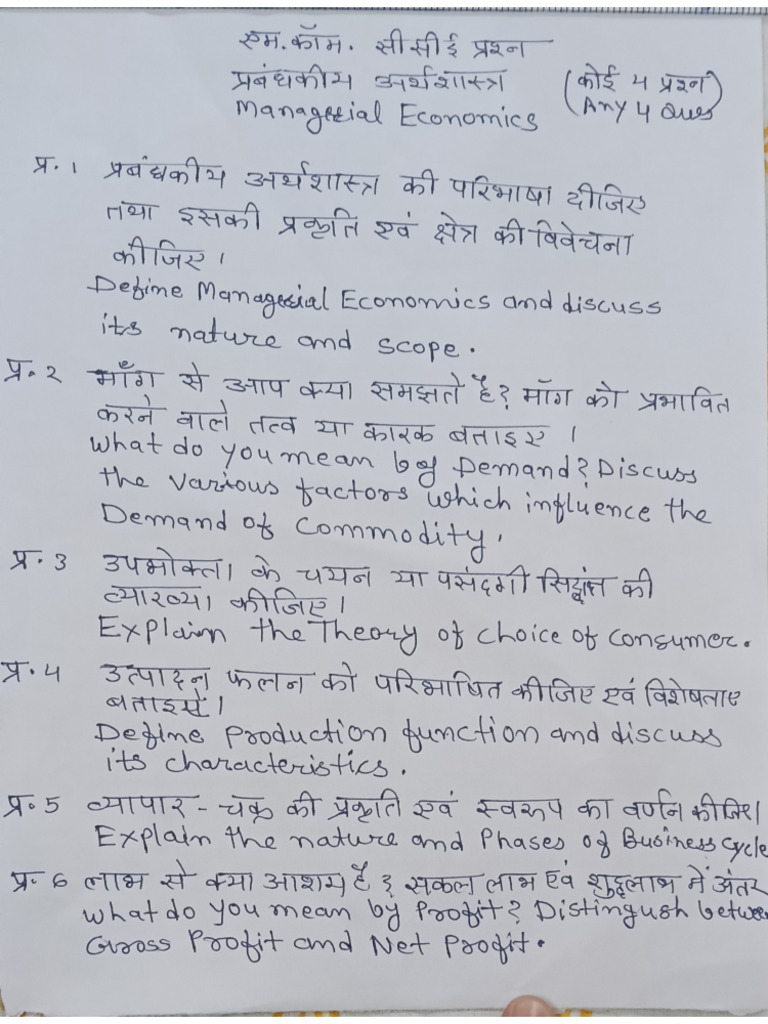 एम. कॉम. सीसीई प्रश्न
प्रबंधकीय अर्थशास्त्र (कोई 4 प्रश्न)
Managerial Economics (Any 4 Ques)
प्र. 1 प्रबंधकीय अर्थशास्त्र की परिभाषा दीजिए
तथा इसकी प्रकृति एवं क्षेत्र की विवेचना
कीजिए।
Define Managerial Economics and discuss
its nature and scope.
प्र. 2 माँग से आप क्या समझते हैं? माँग को प्रभावित
करने वाले तत्व या कारक बताइए।
What do you mean by Demand? Discuss
the various factors which influence the
Demand of Commodity.
प्र. 3 उपभोक्ता के चयन या पसंदगी सिद्धांत की
व्याख्या कीजिए।
Explain the Theory of choice of consumer.
प्र. 4 उत्पादन फलन को परिभाषित कीजिए एवं विशेषताए
बताइये।
Define production function and discuss
its characteristics.
प्र. 5 व्यापार - चक्र की प्रकृति एवं स्वरूप का वर्णन कीजिए।
Explain the nature and Phases of Business cycle
प्र. 6 लाभ से क्या आशय है? सकल लाभ एवं शुद्धलाभ में अंतर
What do you mean by Profit? Distinguish between
Gross Profit and Net Profit.